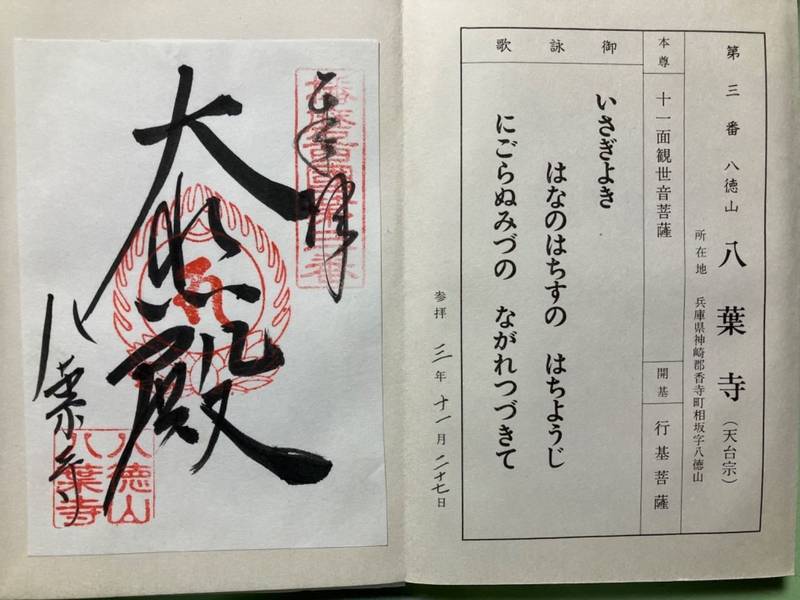 第三番 八徳山 八葉寺 (天台宗)
所在地 兵庫県神崎郡香寺町相坂字八徳山
本尊 十一面観世音菩薩 開基 行基菩薩
御詠歌
いさぎよき
はなのはちすの はちようじ
にごらぬみづの ながれつづきて
参拝 三年十一月二十七日
奉拝
播磨西國第三番
大悲殿
八葉寺
八徳山
八葉寺